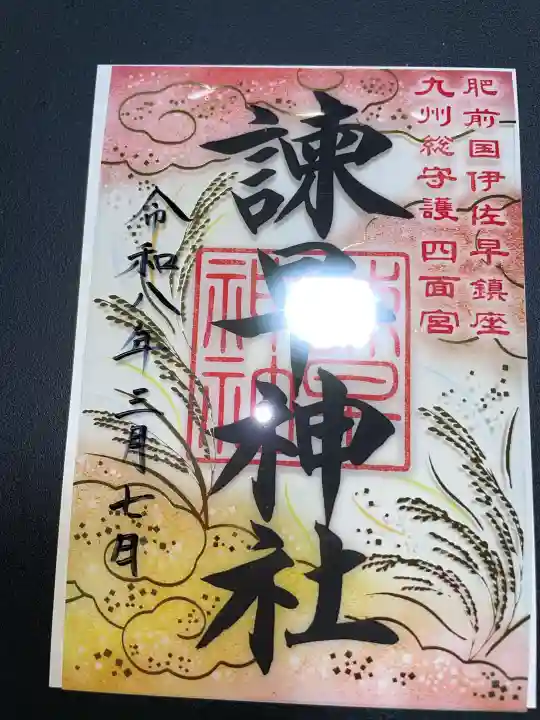 肥前国伊佐早鎮座
九州総守護 四面宮
諫早神社
令和八年三月七日